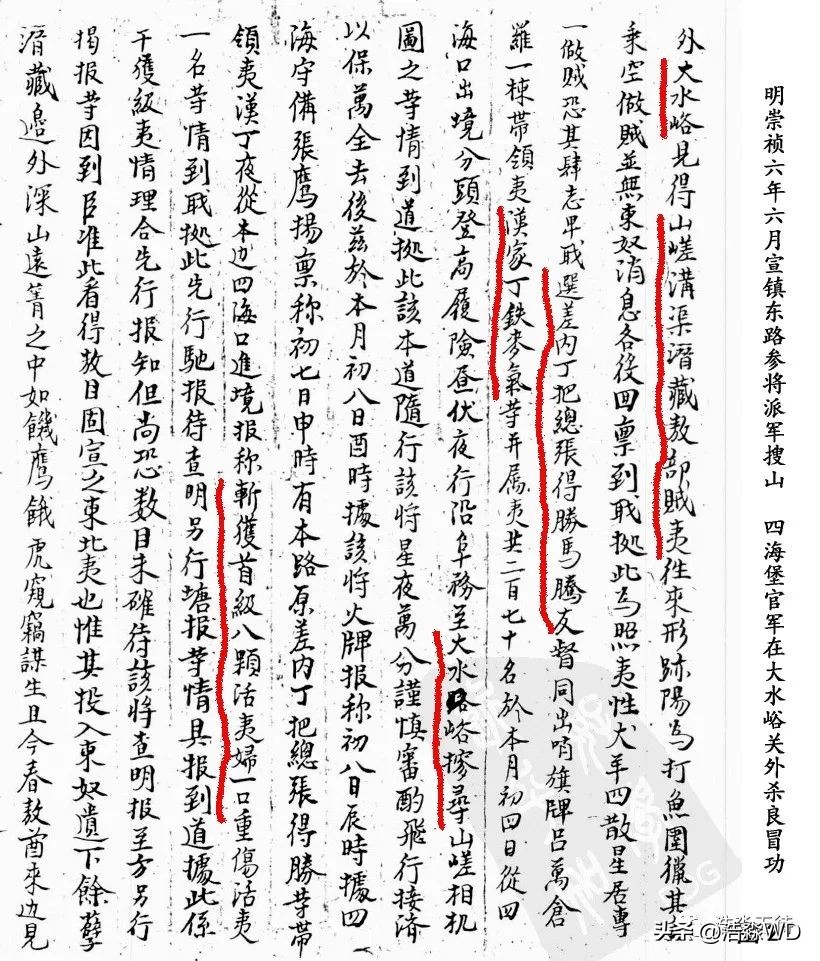 明崇祯六年六月宣镇东路参将派军搜山 四海堡官军在大水峪关外杀良冒功
外大水峪見得山嵯溝渠潛藏敖部賊夷徃來形跡陽為打魚圍獵其
乘空做賊並無東奴消息各後回禀到戢拠此為照夷性犬羊四散星居專
一做賊恐其肆志早戢選差内丁把總張得勝馬騰友督同出哨旗牌呂萬倉
羅一棟帶領夷漢家丁鉄麥氣等并属夷共二百七十名於本月初四日從四
海口出境分頭登高履險昼伏夜行沿阜務至大水峪搜尋山嵯相机
圖之等情到道拠此該本道隨行該将星夜萬分謹慎審酌飛行接済
以保萬全去後茲於本月初八日酉時據該将火牌报称初八日辰時據四
海守備張鷹揚禀称初七日申時有本路原差内丁把總張得勝等帶
領夷漢丁夜從本边四海口進境报称斬獲首級八顆活夷婦一口重傷活夷
一名等情到戢拠此先行馳报待查明另行塘报等情具报到道據此係
干獲級夷情理合先行报知但尚恐数目未確待該将查明报至方另行
揭报等因到臣准此看得敖目固宣之東北夷也惟其投入東奴遺下餘孽
潛藏邉外深山遠箐之中如饑鷹餓虎窺竊謀生且今春敖酋來边見
头条 @浩淼WD